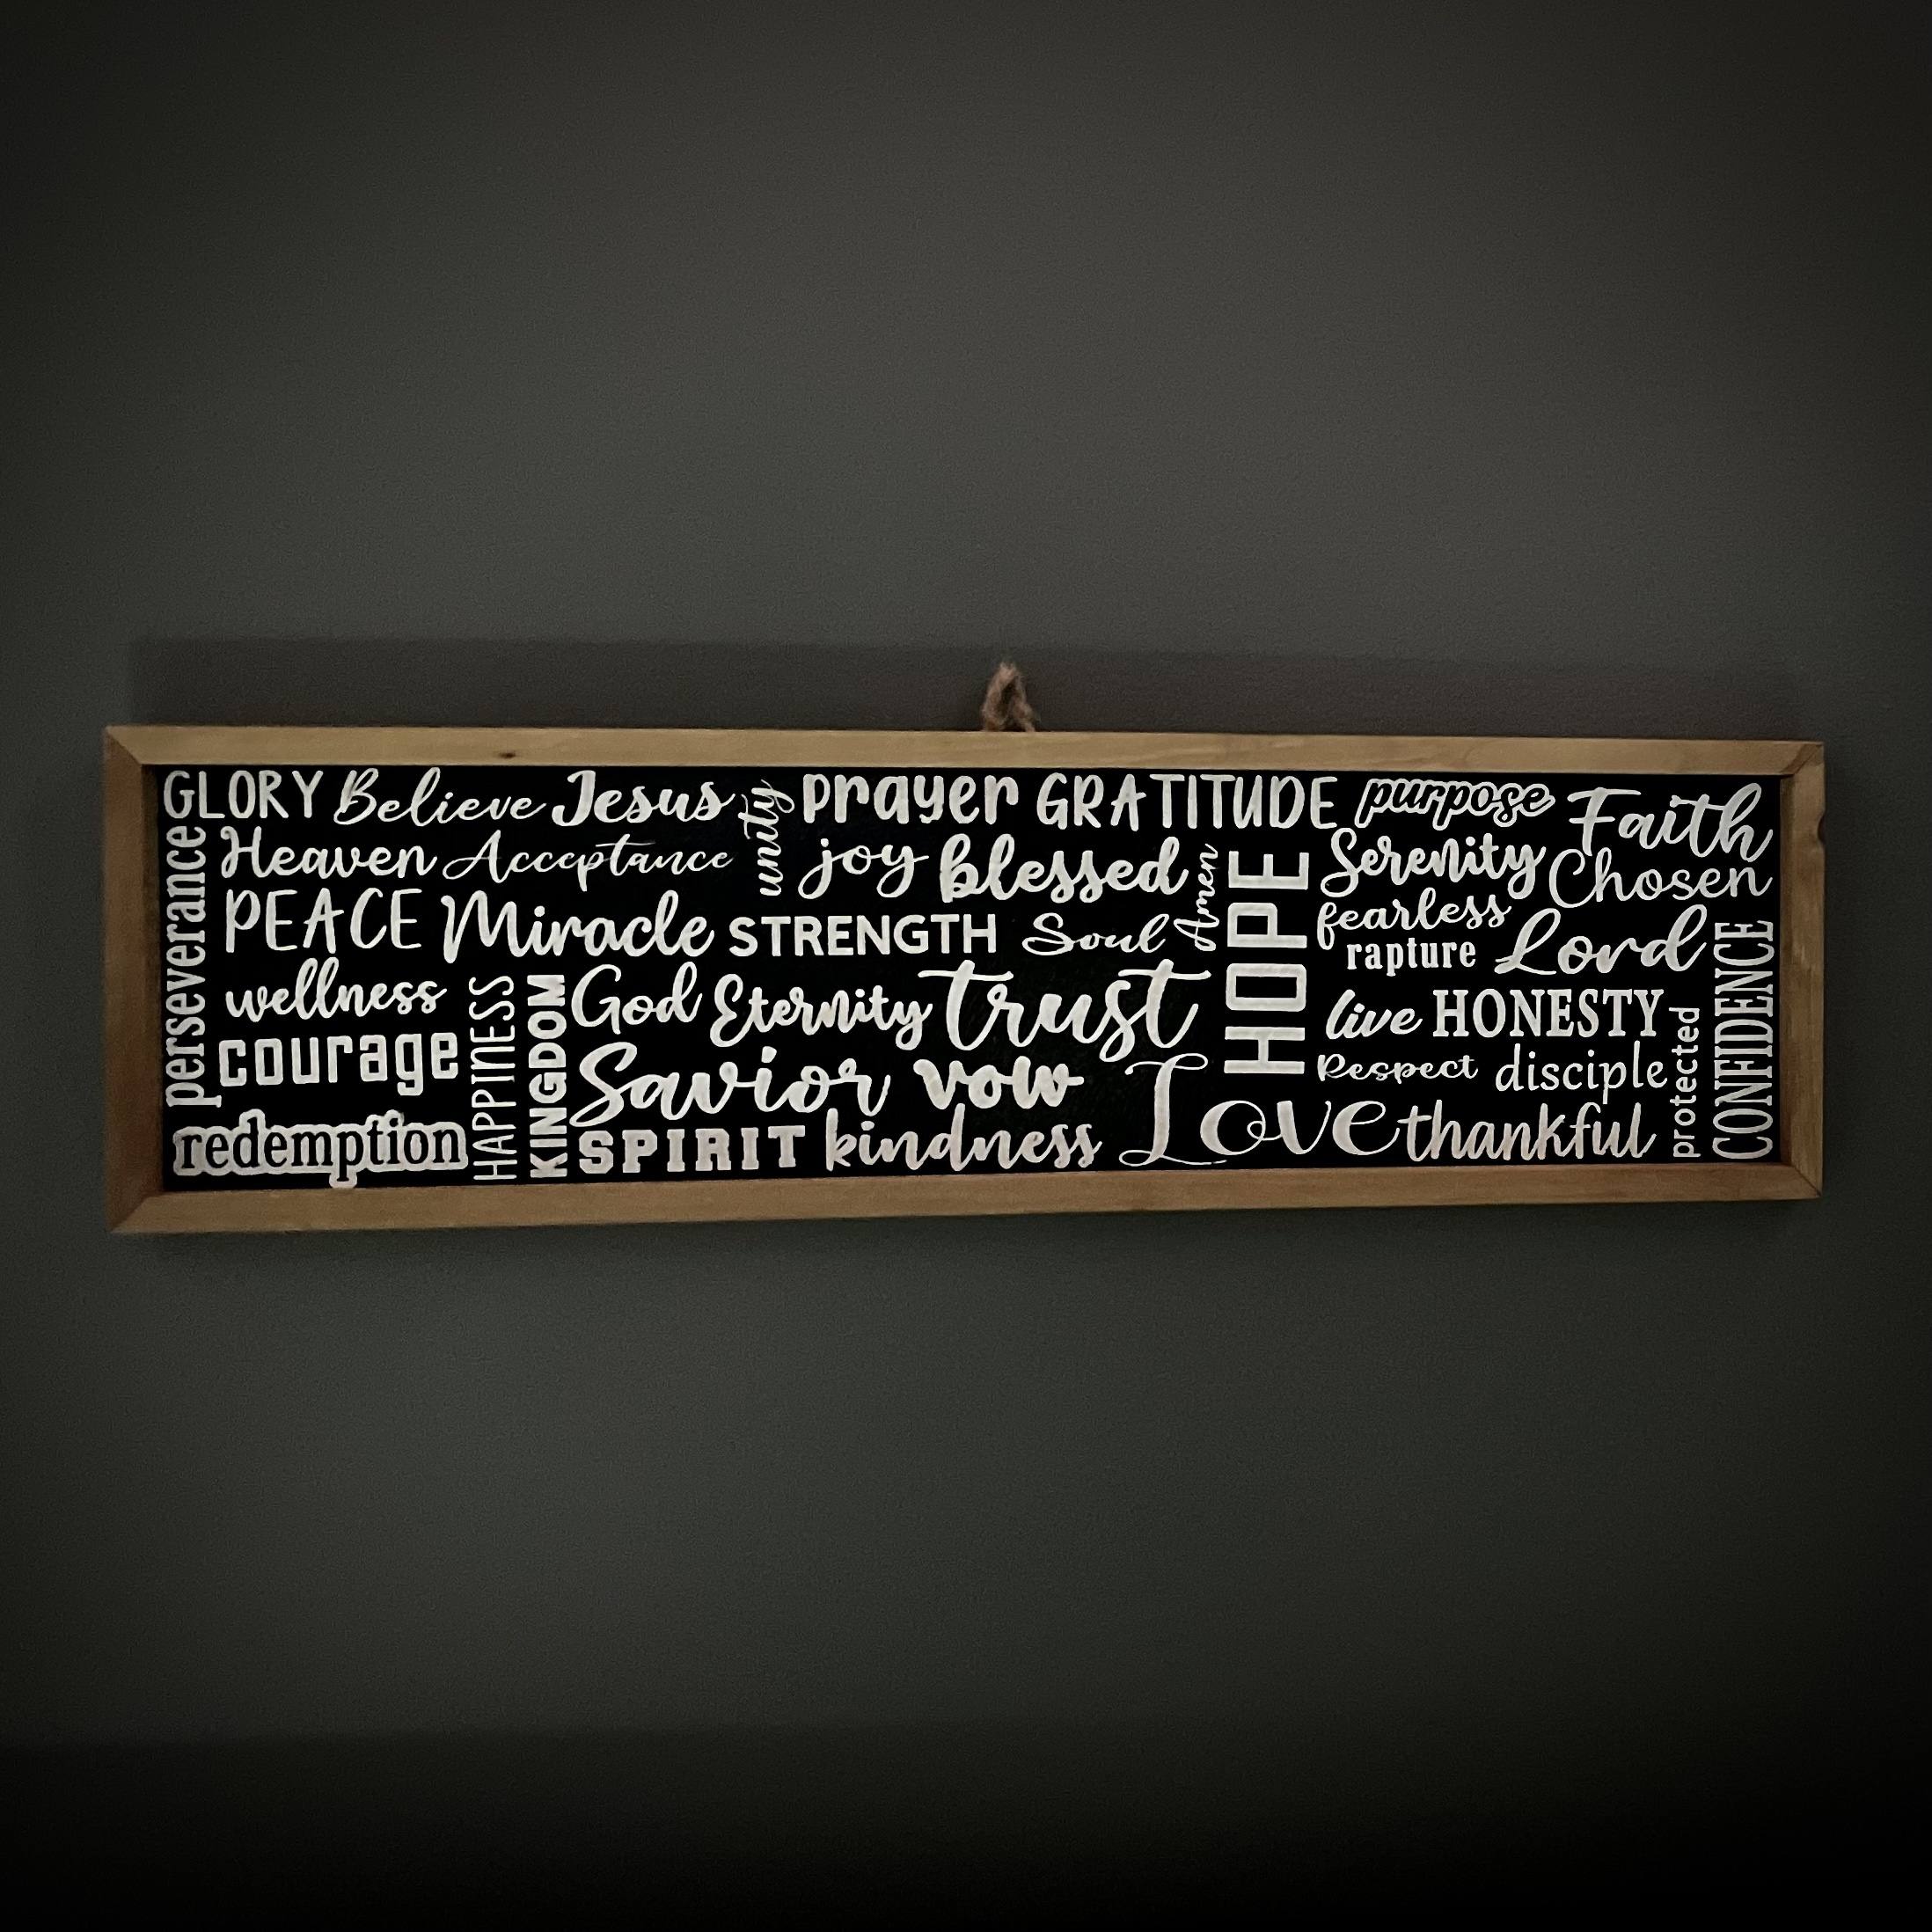 GLORY Believe Jesus unity prayer GRATITUDE purpose Faith
perseverance Heaven Acceptance joy blessed Amen HOPE Serenity Chosen
PEACE Miracle STRENGTH Soul fearless
rapture Lord CONFIDENCE
wellness HAPPINESS KINGDOM God Eternity trust live HONESTY protected
courage Savior vow Respect disciple
redemption SPIRIT kindness Love thankful